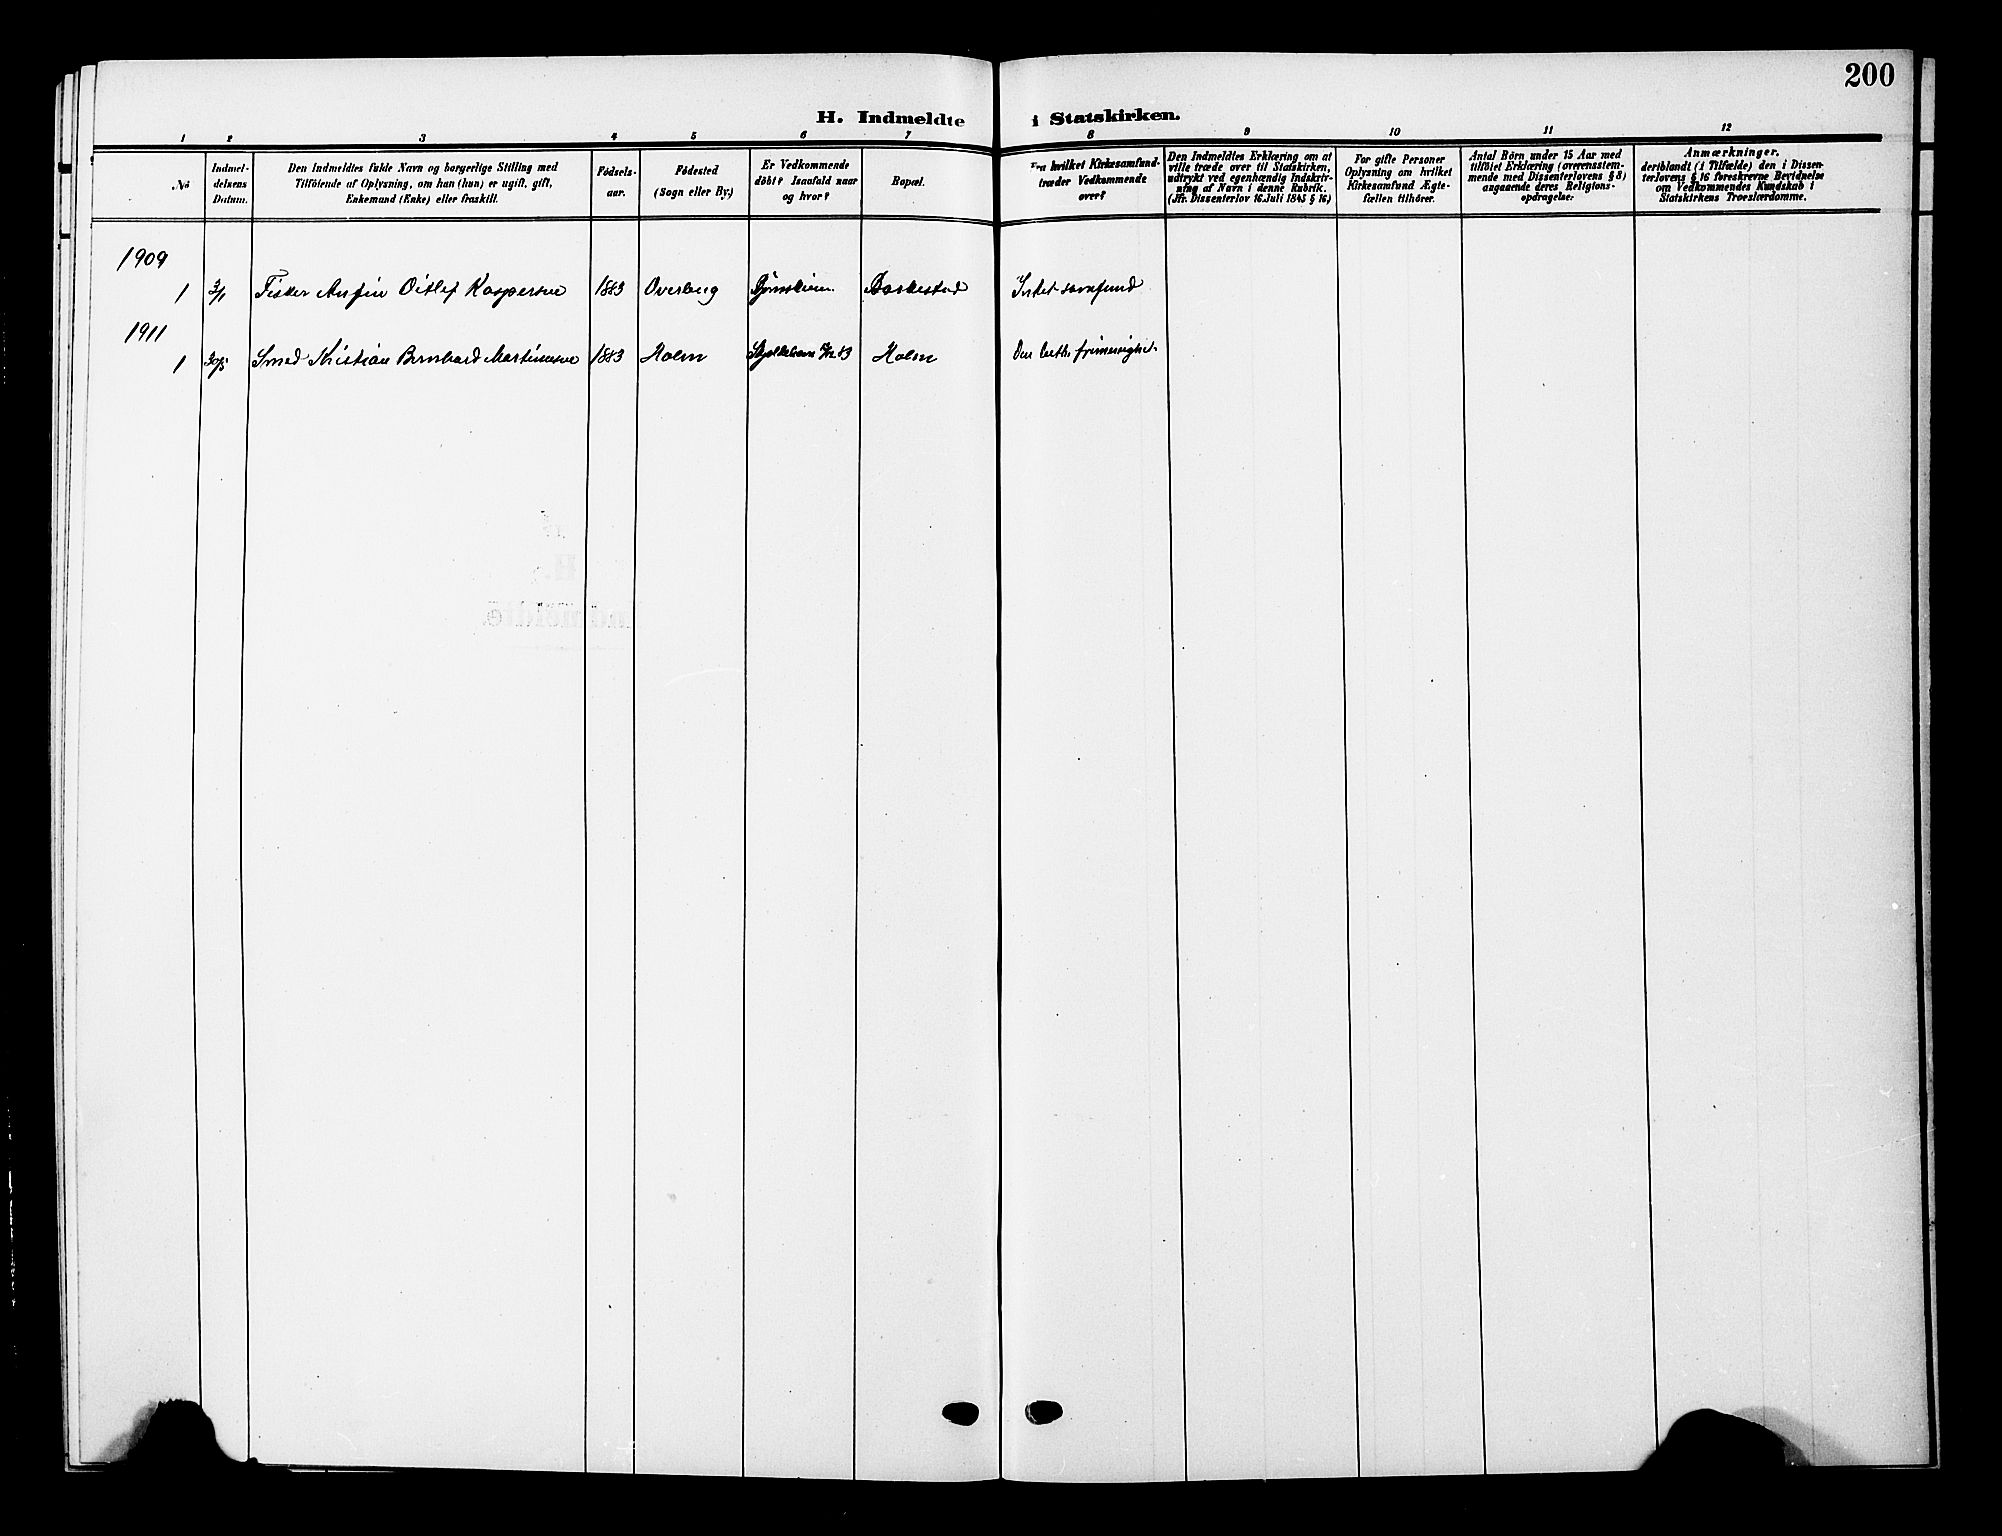 200
H. Indmeldte i Statskirken.
1 2 3 4 5 6 7 8 9 10 11 12
No
Indmel-
delsens
Datum.
Den Indmeldtes fulde Navn og borgerlige Stilling med
Tilföiende af Oplysning, om han (hun) er ugift, gift,
Enkemand (Enke) eller fraskilt.
Födsels-
aar.
Födested
(Sogn eller By.)
Er Vedkommende
döbt? Isaafald naar
og hvor?
Bopæl.
hvilket Kirkesamfund
træder Vedkommende
over?
Den Indmeldtes Erklæring om at
ville træde over til Statskirken,
udtrykt ved egenhændig Indskriv-
ning af Navn i denne Rubrik.
(Jfr. Dissenterlov 16. Juli 1845 § 16.)
For gifte Personer
Oplysning om hvilket
Kirkesamfund Ægte-
fællen tilhörer.
Antal Börn under 15 Aar med
tilföiet Erklæring (overensstem-
mende med Dissenterlovens § 8)
angaaende deres Religions-
opdragelse.
Anmærkninger,
deriblandt (i Tilfælde) den i Dissen-
terlovens § 16 foreskrevne Bevidnelse
om Vedkommendes Kundskab i
Statskirkens Troeslærdomme.
1909
1 3/1 Fisker Anfin Ditlef Kaspersen 1883 Overberg Intet samfund
1911
1 30/5 Smed Kristian Bernhard Martinsen 1883 Holm Holm Den luth. frimenighet